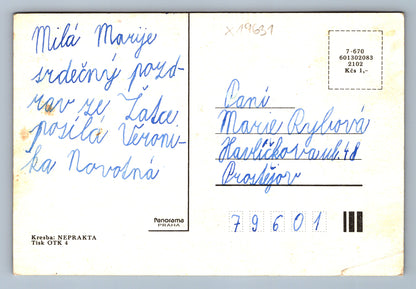 Milá Marije
srdečný pozd
rav ze Žatce
posílá Veroni-
ka Novotná
Kresba: NEPRAKTA
Tisk OTK 4
Panorama
PRAHA
X19631
7-670
601302083
2102
Kčs 1,-
Paní
Marie Rybová
Havlíčkova ul. 48
Prostějov
79601